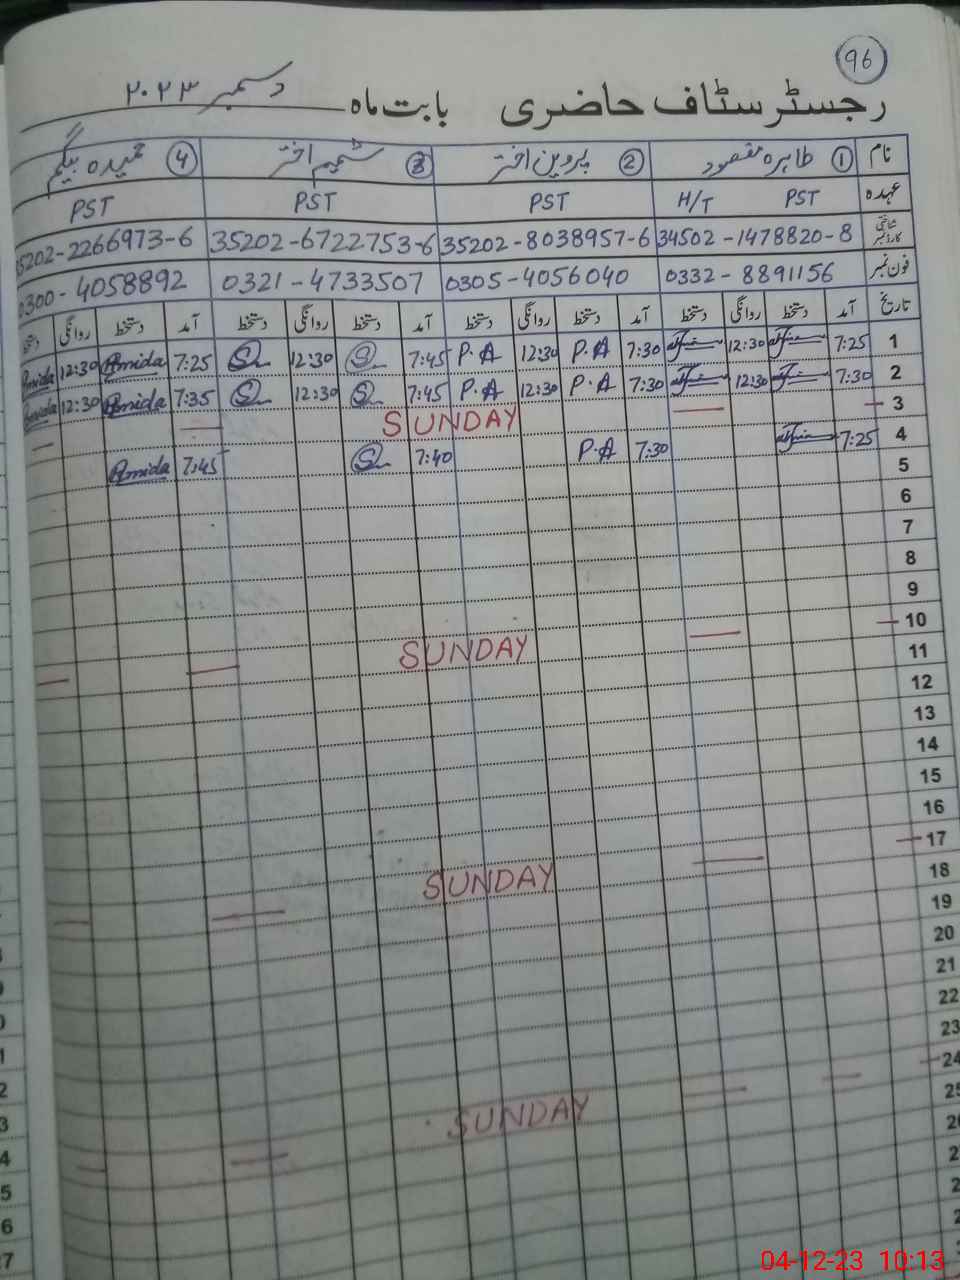 96
رجسٹر سٹاف حاضری بابت ماہ دسمبر ۲۰۲۳
نام ① طاہرہ مقصود ② پروین اختر ③ شمیم اختر ④ حمیدہ بیگم
عہدہ PST H/T PST PST PST
شناختی کارڈ نمبر 34502-1478820-8 35202-8038957-6 35202-6722753-6 35202-2266973-6
فون نمبر 0332-8891156 0305-4056040 0321-4733507 0300-4058892
تاریخ آمد دستخط روانگی دستخط آمد دستخط روانگی دستخط آمد دستخط روانگی دستخط آمد دستخط روانگی
1 7:25 12:30 7:30 P.A 12:30 P.A 7:45 12:30 7:25 Amida 12:30
2 7:30 12:30 7:30 P.A 12:30 P.A 7:45 12:30 7:35 Amida 12:30
3 SUNDAY
4 7:25 7:30 P.A 7:40 7:45 Amida
5
6
7
8
9
10 SUNDAY
11
12
13
14
15
16
17 SUNDAY
18
19
20
21
22
23
24 SUNDAY
25
04-12-23 10:13